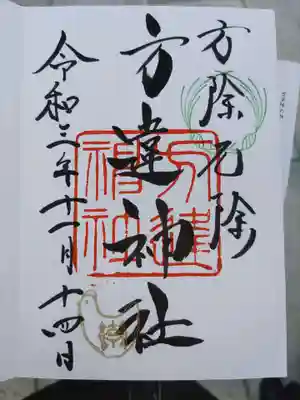 方除厄除
方違神社
方違
神社
令和三年十一月十四日